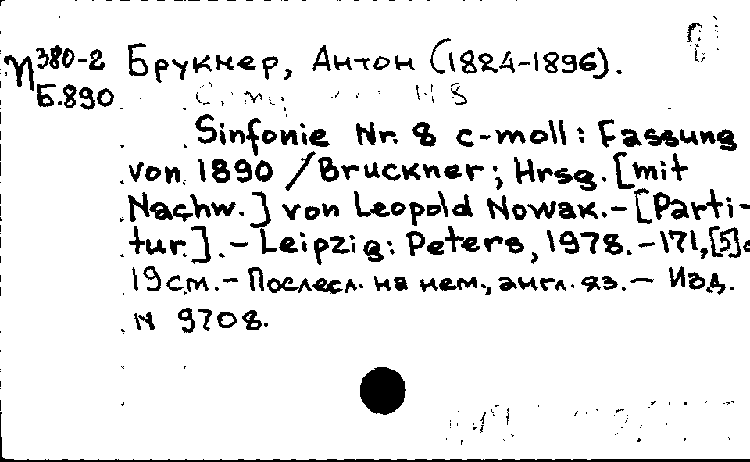 П380-2 Брукнер, Антон (1824-1896).
Б.890
Sinfonie Nr. 8 c-moll: Fassung
von 1890 / Bruckner; Hrsg. [mit
Nachw.] von Leopold Nowak.-[Parti-
tur.].-Leipzig: Peters, 1978.-171,[5]с
19см.-Послесл. на нем., англ. яз.- Изд.
N 9708.